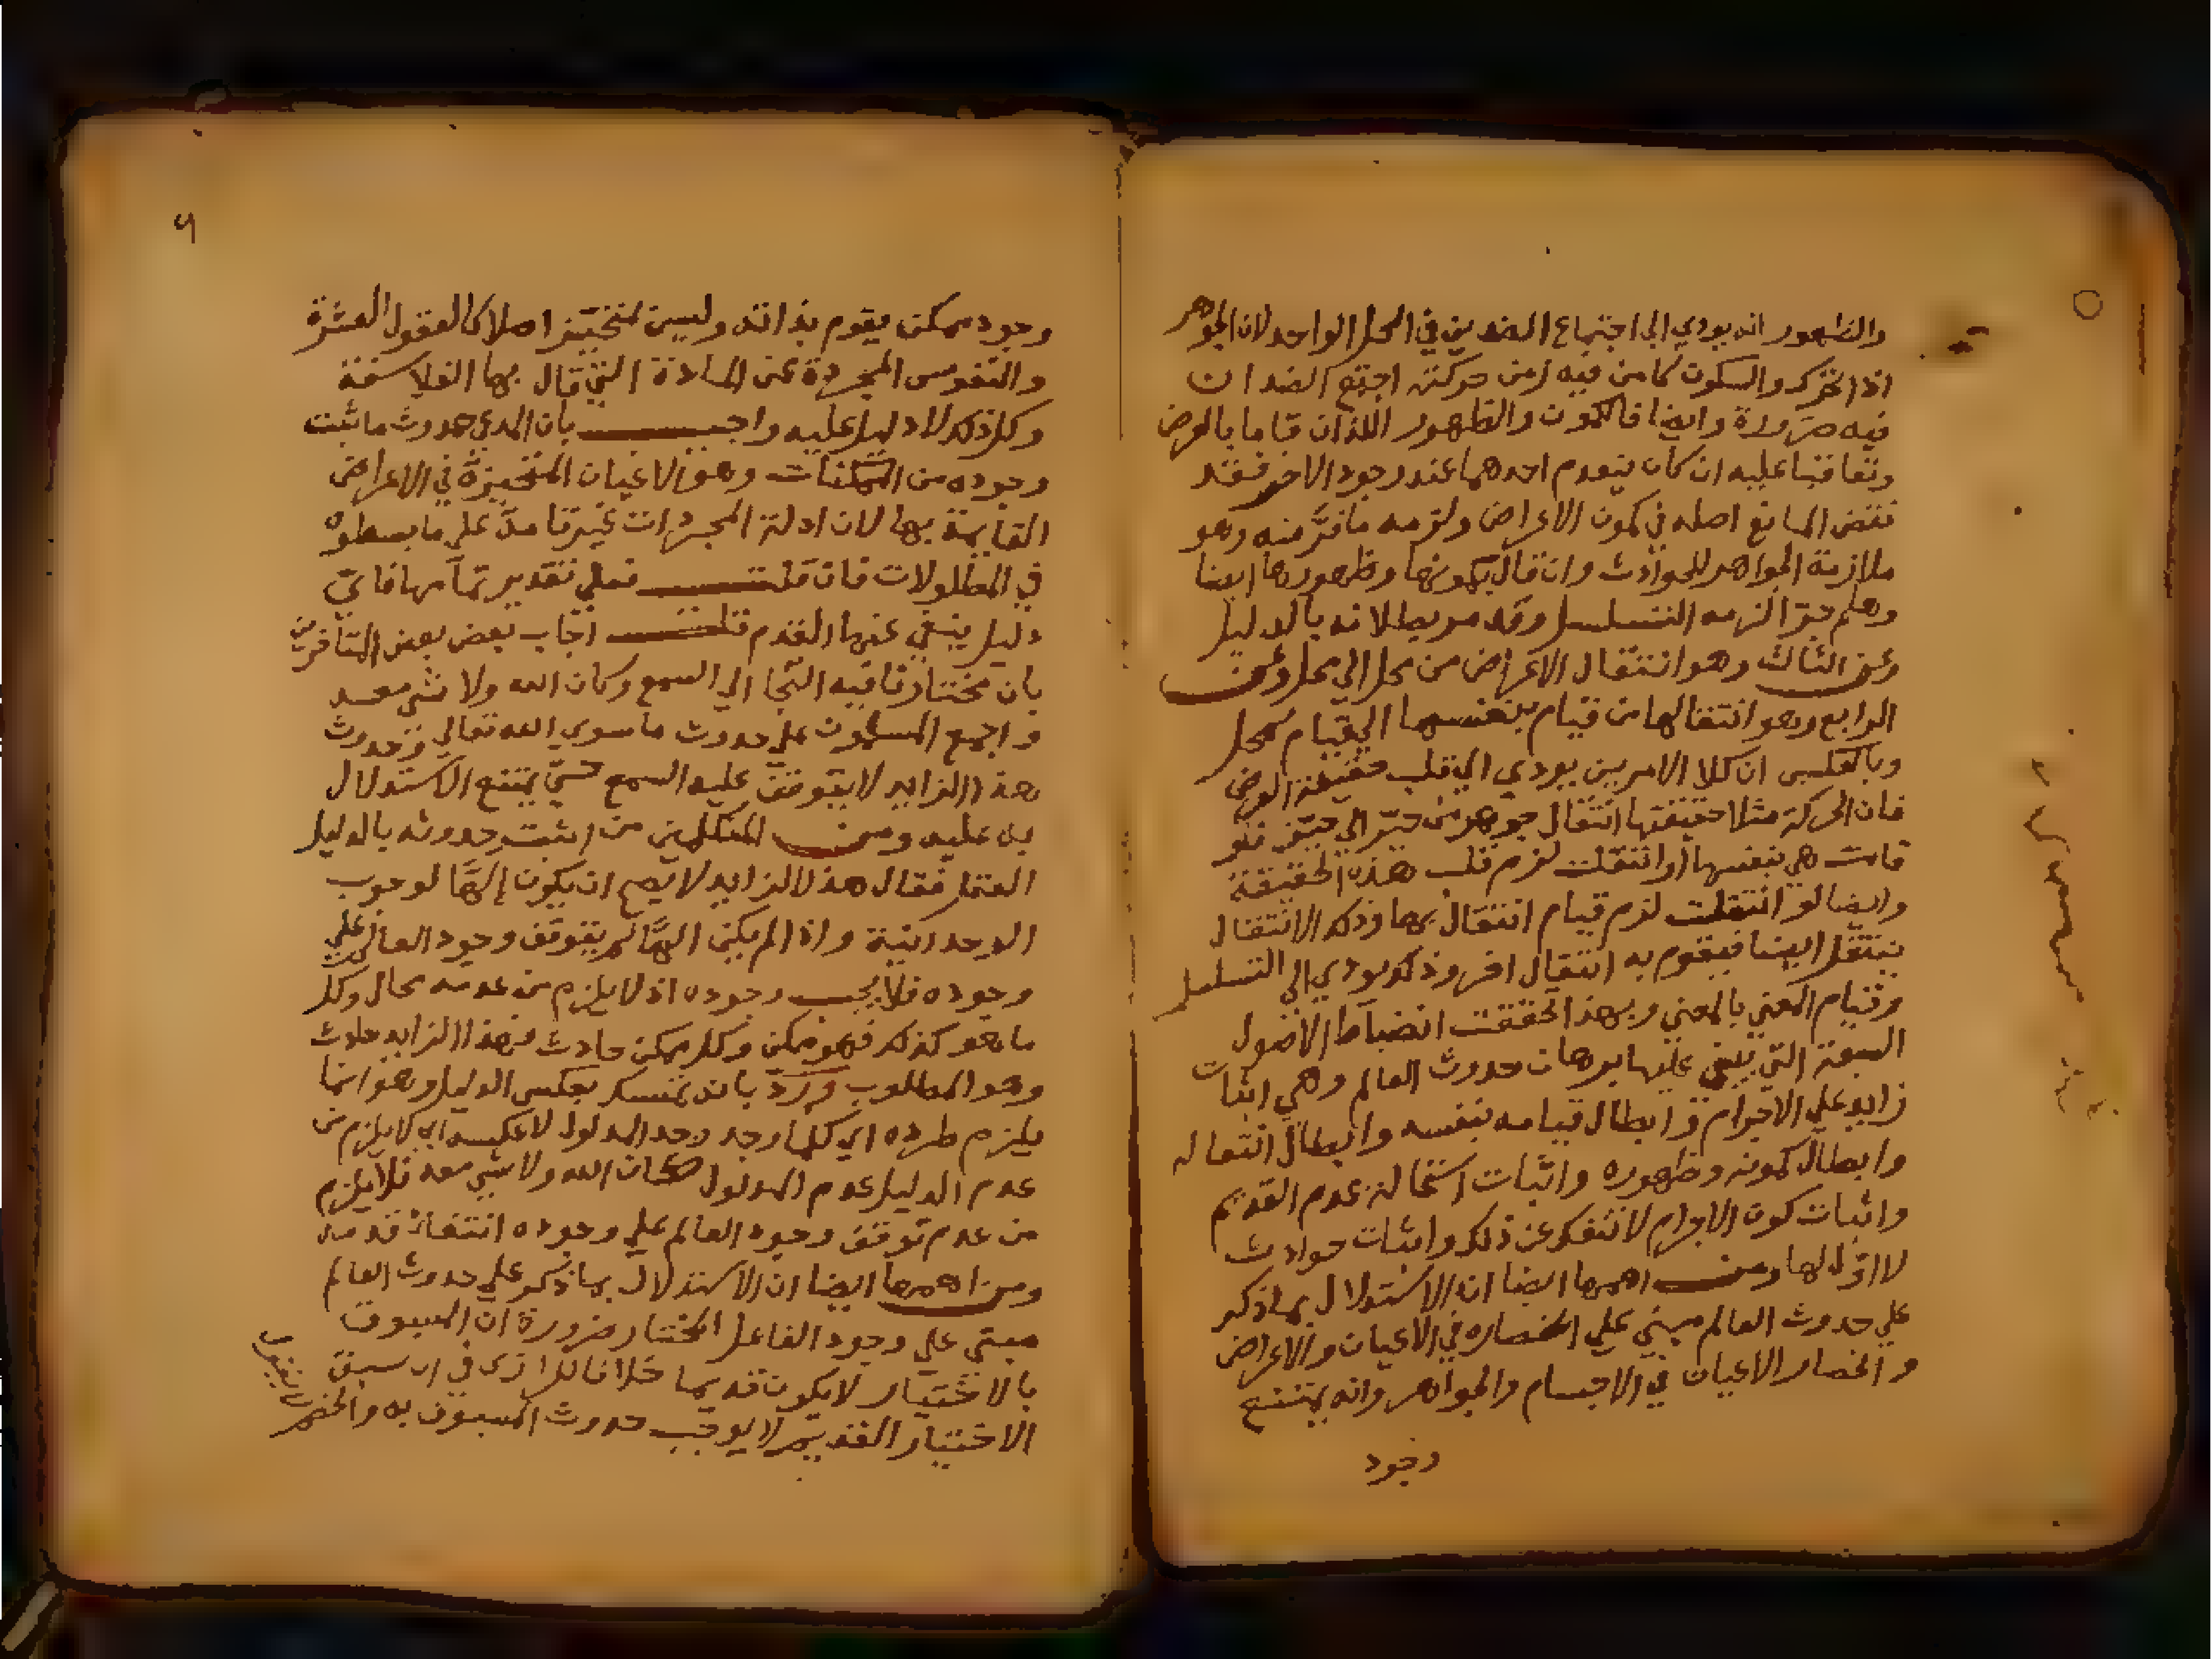 والظهور انه يودي الي اجتماع الضدين في المحل الواحد لان الجوهر
اذا تحرك والسكون كامن فيه زمن حركته اجتمع الضدان
فيه ضرورة وايضا فالكمون والظهور اللذان قاما بالعرض
وتعاقبا عليه ان كان ينعدم احدهما عند وجود الاخر فقد
نقض المانع اصله في كمون الاعراض ولزمه ما فر منه وهو
ملازمة الجواهر للحوادث وان قال بكمونها وظهورها ايضا
وهلم جرا لزمه التسلسل وقد مر بطلانه بالدليل
وعن الثالث وهو انتقال الاعراض من محل الي محل وعن
الرابع وهو انتقالها من قيام بنفسها الي قيام بمحل
وبالعكس ان كلا الامرين يودي الي قلب حقيقة العرض
فان الحركة مثلا حقيقتها انتقال جوهر من حيز الي حيز فلو
قامت هي بنفسها او انتقلت لزم قلب هذه الحقيقة
وايضا لو انتقلت لزم قيام انتقال بها وذلك الانتقال
ينتقل ايضا فيقوم به انتقال اخر وذلك يودي الي التسلسل
وقيام المعني بالمعني وبهذا تحققت انضباط الاصول
السبعة التي ينبني عليها برهان حدوث العالم وهي اثبات
زايد علي الاجرام وابطال قيامه بنفسه وابطال انتقاله
وابطال كمونه وظهوره واثبات استحالة عدم القديم
واثبات كون الاجرام لا تنفك عن ذلك واثبات حوادث
لا اول لها ومن اهمها ايضا ان الاستدلال بما ذكر
علي حدوث العالم مبني علي انحصاره في الاعيان والاعراض
وانحصار الاعيان في الاجسام والجواهر وانه يمتنع
وجود
وجود ممكن يقوم بذاته وليس متحيز اصلا كالعقول العشرة
والنفوس المجردة عن المادة التي قال بها الفلاسفة
وكل ذلك لا دليل عليه واجيب بان المدعي حدوث ما ثبت
وجوده من الممكنات وهو الاعيان المتحيزة في الاعراض
القايمة بها لان ادلة المجردات غير تامة علي ما بسطوه
في المطولات فان قلت فعلي تقدير تمامها فاي
دليل ينفي عنها القدم قلت اجاب بعض بعض المتاخرين
بان مختارنا فيه التجا الي السمع وكان الله ولا شي معه
واجمع المسلمون علي حدوث ما سوي الله تعالي وحدوث
هذا الزايد لا يتوقف عليه السمع حتي يمتنع الاستدلال
به عليه ومن المتكلمين من اثبت حدوثه بالدليل
العقلي فقال هذا الزايد لا يصح ان يكون إلها لوجوب
الوحدانية واذا لم يكن الها لم يتوقف وجود العالم علي
وجوده فلا يجب وجوده اذ لا يلزم من عدمه محال وكل
ما هو كذلك فهو ممكن وكل ممكن حادث فهذا الزايد حادث
وهو المطلوب ورد بانه تمسك بعكس الدليل وهو انما
يلزم طرده اي كلما وجد وجد المدلول لا عكسه اي لا يلزم من
عدم الدليل عدم المدلول فكان الله ولا شي معه فلا يلزم
من عدم توقف وجود العالم علي وجوده انتفاء قدمه
ومن اهمها ايضا ان الاستدلال بما ذكر علي حدوث العالم
مبني علي وجود الفاعل المختار ضرورة ان المسبوق
بالاختيار لا يكون قديما خلافا للرازي في ان سبق
الاختيار القديم لا يوجب حدوث المسبوق به والخصم